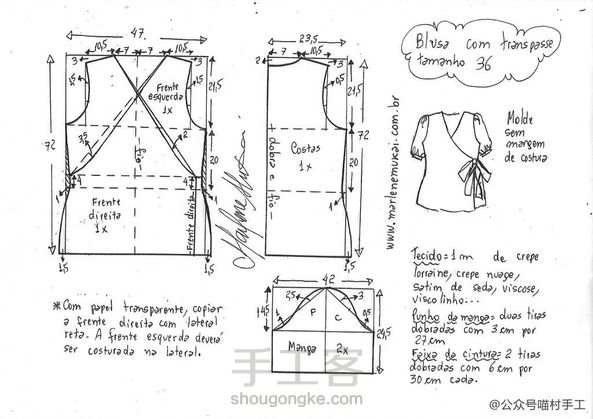 47
10,5 7 7 10,5
3 3
1,5 1,5
Frente
esquerda
1x
21,5
72
3,5 2
fio
20
4 4
1 1
Frente
direita
1x
Frente direita
1,5 1,5
23,5
2 3
0,5
21,5
72
Costas
1x
dobra e fio
20
1
1,5
Marlene Mukai
www.marlenemukai.com.br
Blusa com transpasse
tamanho 36
Molde
sem
margem
de costura
42
14,5
2,5 3
1 0,5
F C
24,5
Manga 2x
* Com papel transparente, copiar
a frente direita com lateral
reta. A frente esquerda deverá
ser costurada na lateral.
Tecido = 1 m de crepe
Lorraine, crepe nuage,
satim de seda, viscose,
visco linho...
Punho da manga: duas tiras
dobradas com 3 cm por
27 cm
Faixa da cintura: 2 tiras
dobradas com 6 cm por
30 cm cada.
手工客
shougongke.com
@公众号喵村手工